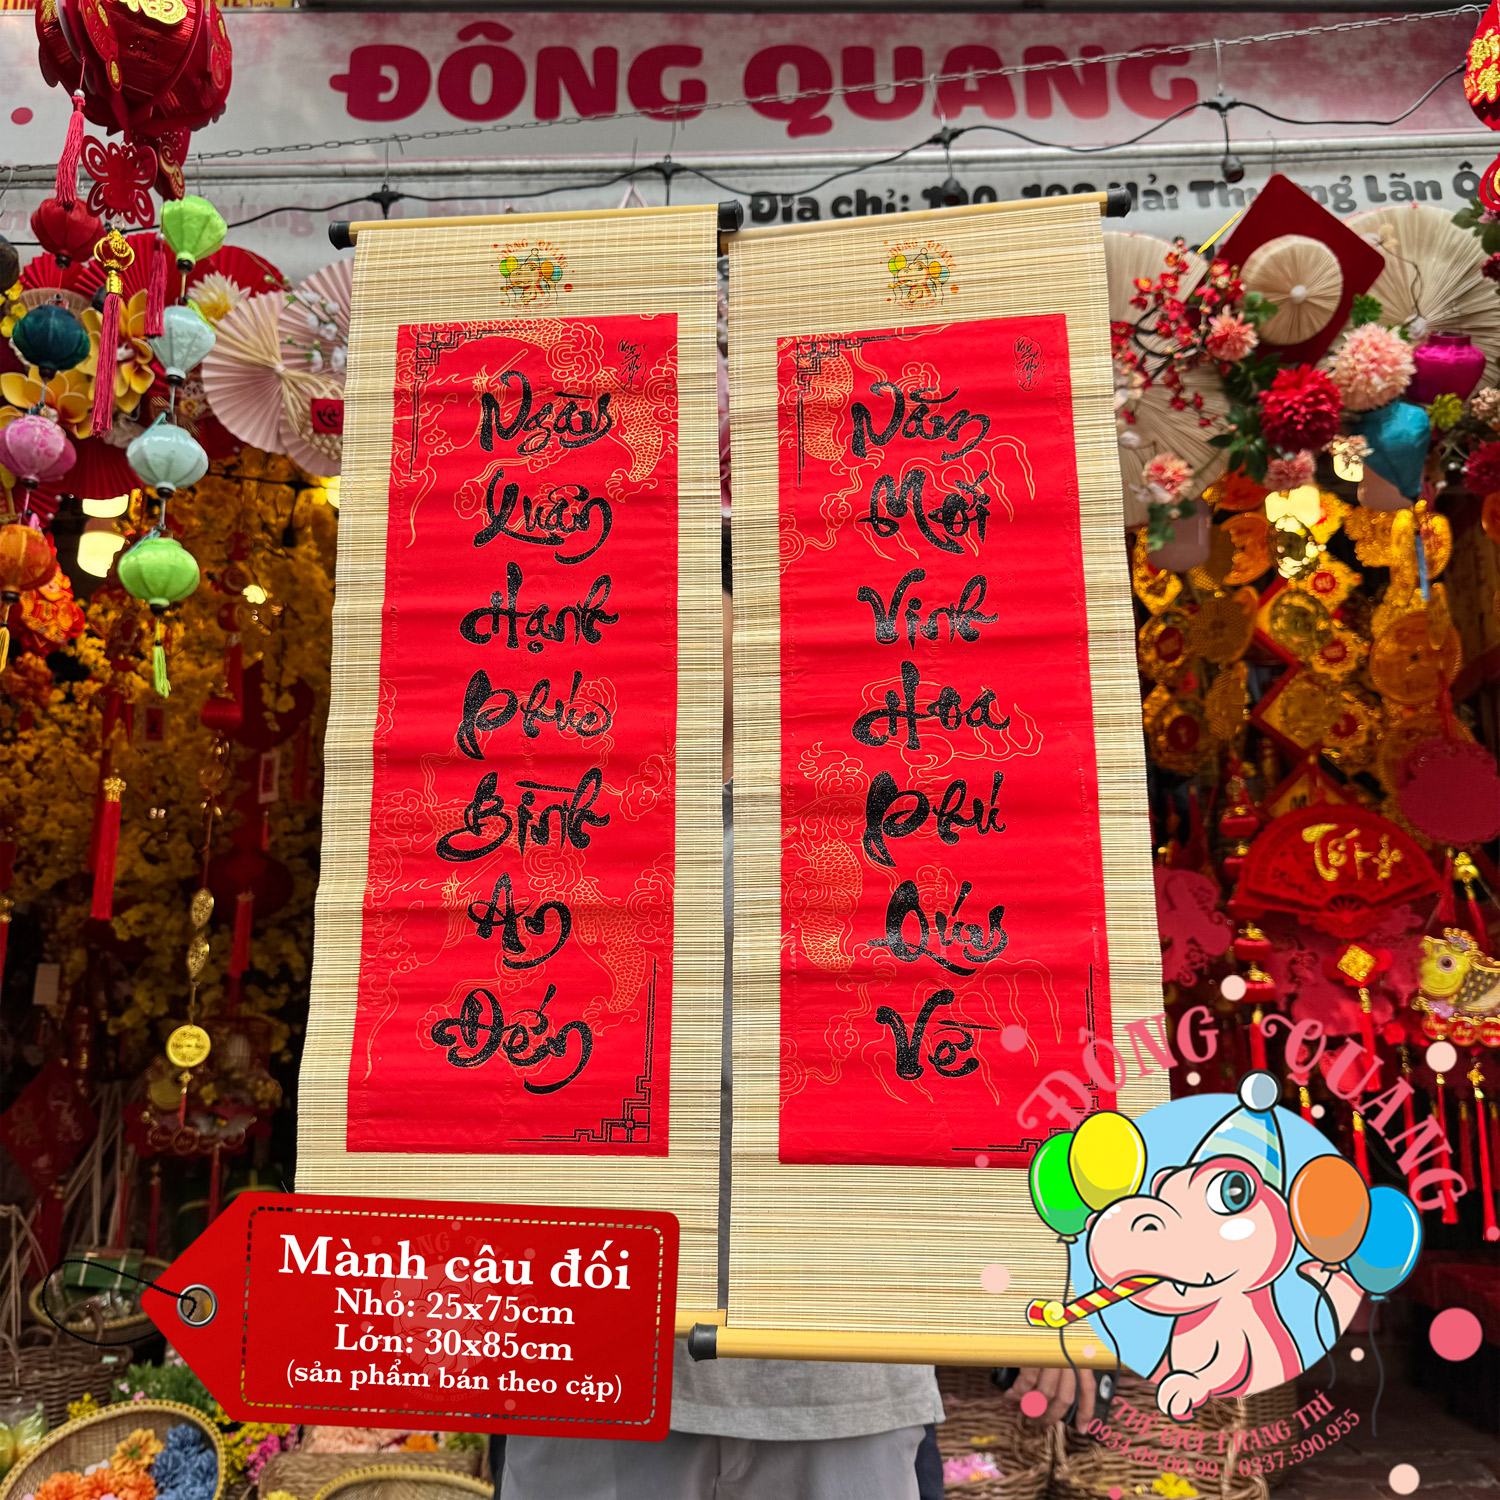 ĐÔNG QUANG
Địa chỉ: 100-102 Hải Thượng Lãn Ô
Ngày
Xuân
Hạnh
Phúc
Bình
An
Đến
Năm
Mới
Vinh
Hoa
Phú
Quý
Về
Mành câu đối
Nhỏ: 25x75cm
Lớn: 30x85cm
(sản phẩm bán theo cặp)
ĐÔNG QUANG
THẾ GIỚI TRANG TRÍ
0934.09.00.99 - 0337.590.955